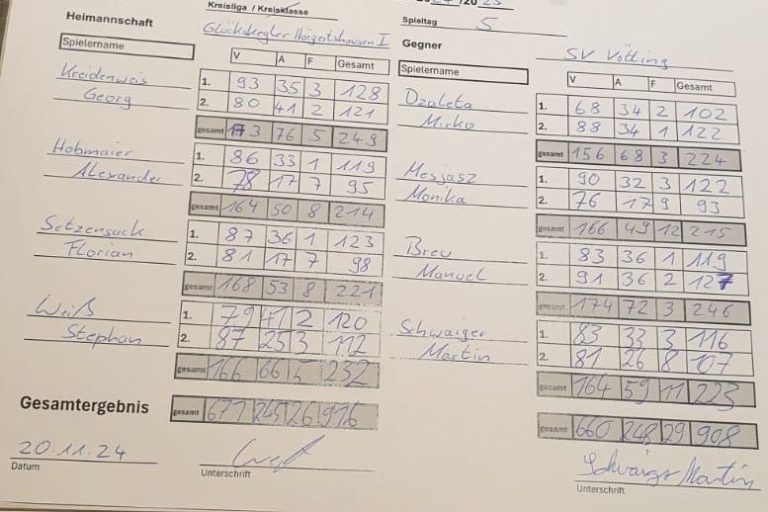 Kreisliga / Kreisklasse
Heimmannschaft
Glückskegler Hörgertshausen I
Spielername
V A F Gesamt
Kreidenweis
Georg
1. 93 35 3 128
2. 80 41 2 121
gesamt 173 76 5 249
Hobmaier
Alexander
1. 86 33 1 119
2. 78 17 7 95
gesamt 164 50 8 214
Setzensack
Florian
1. 87 36 1 123
2. 81 17 7 98
gesamt 168 53 8 221
Weiß
Stephan
1. 79 41 2 120
2. 87 25 3 112
gesamt 166 66 5 232
Gesamtergebnis
gesamt 671 245 26 916
20.11.24
Datum
Unterschrift
Spieltag 5
Gegner
SV Vötting
Spielername
V A F Gesamt
Dzaleta
Mirko
1. 68 34 2 102
2. 88 34 1 122
gesamt 156 68 3 224
Mesjasz
Monika
1. 90 32 3 122
2. 76 17 9 93
gesamt 166 49 12 215
Breu
Manuel
1. 83 36 1 119
2. 91 36 2 127
gesamt 174 72 3 246
Schwaiger
Martin
1. 83 33 3 116
2. 81 26 8 107
gesamt 164 59 11 223
gesamt 660 248 29 908
Schwaiger Martin
Unterschrift